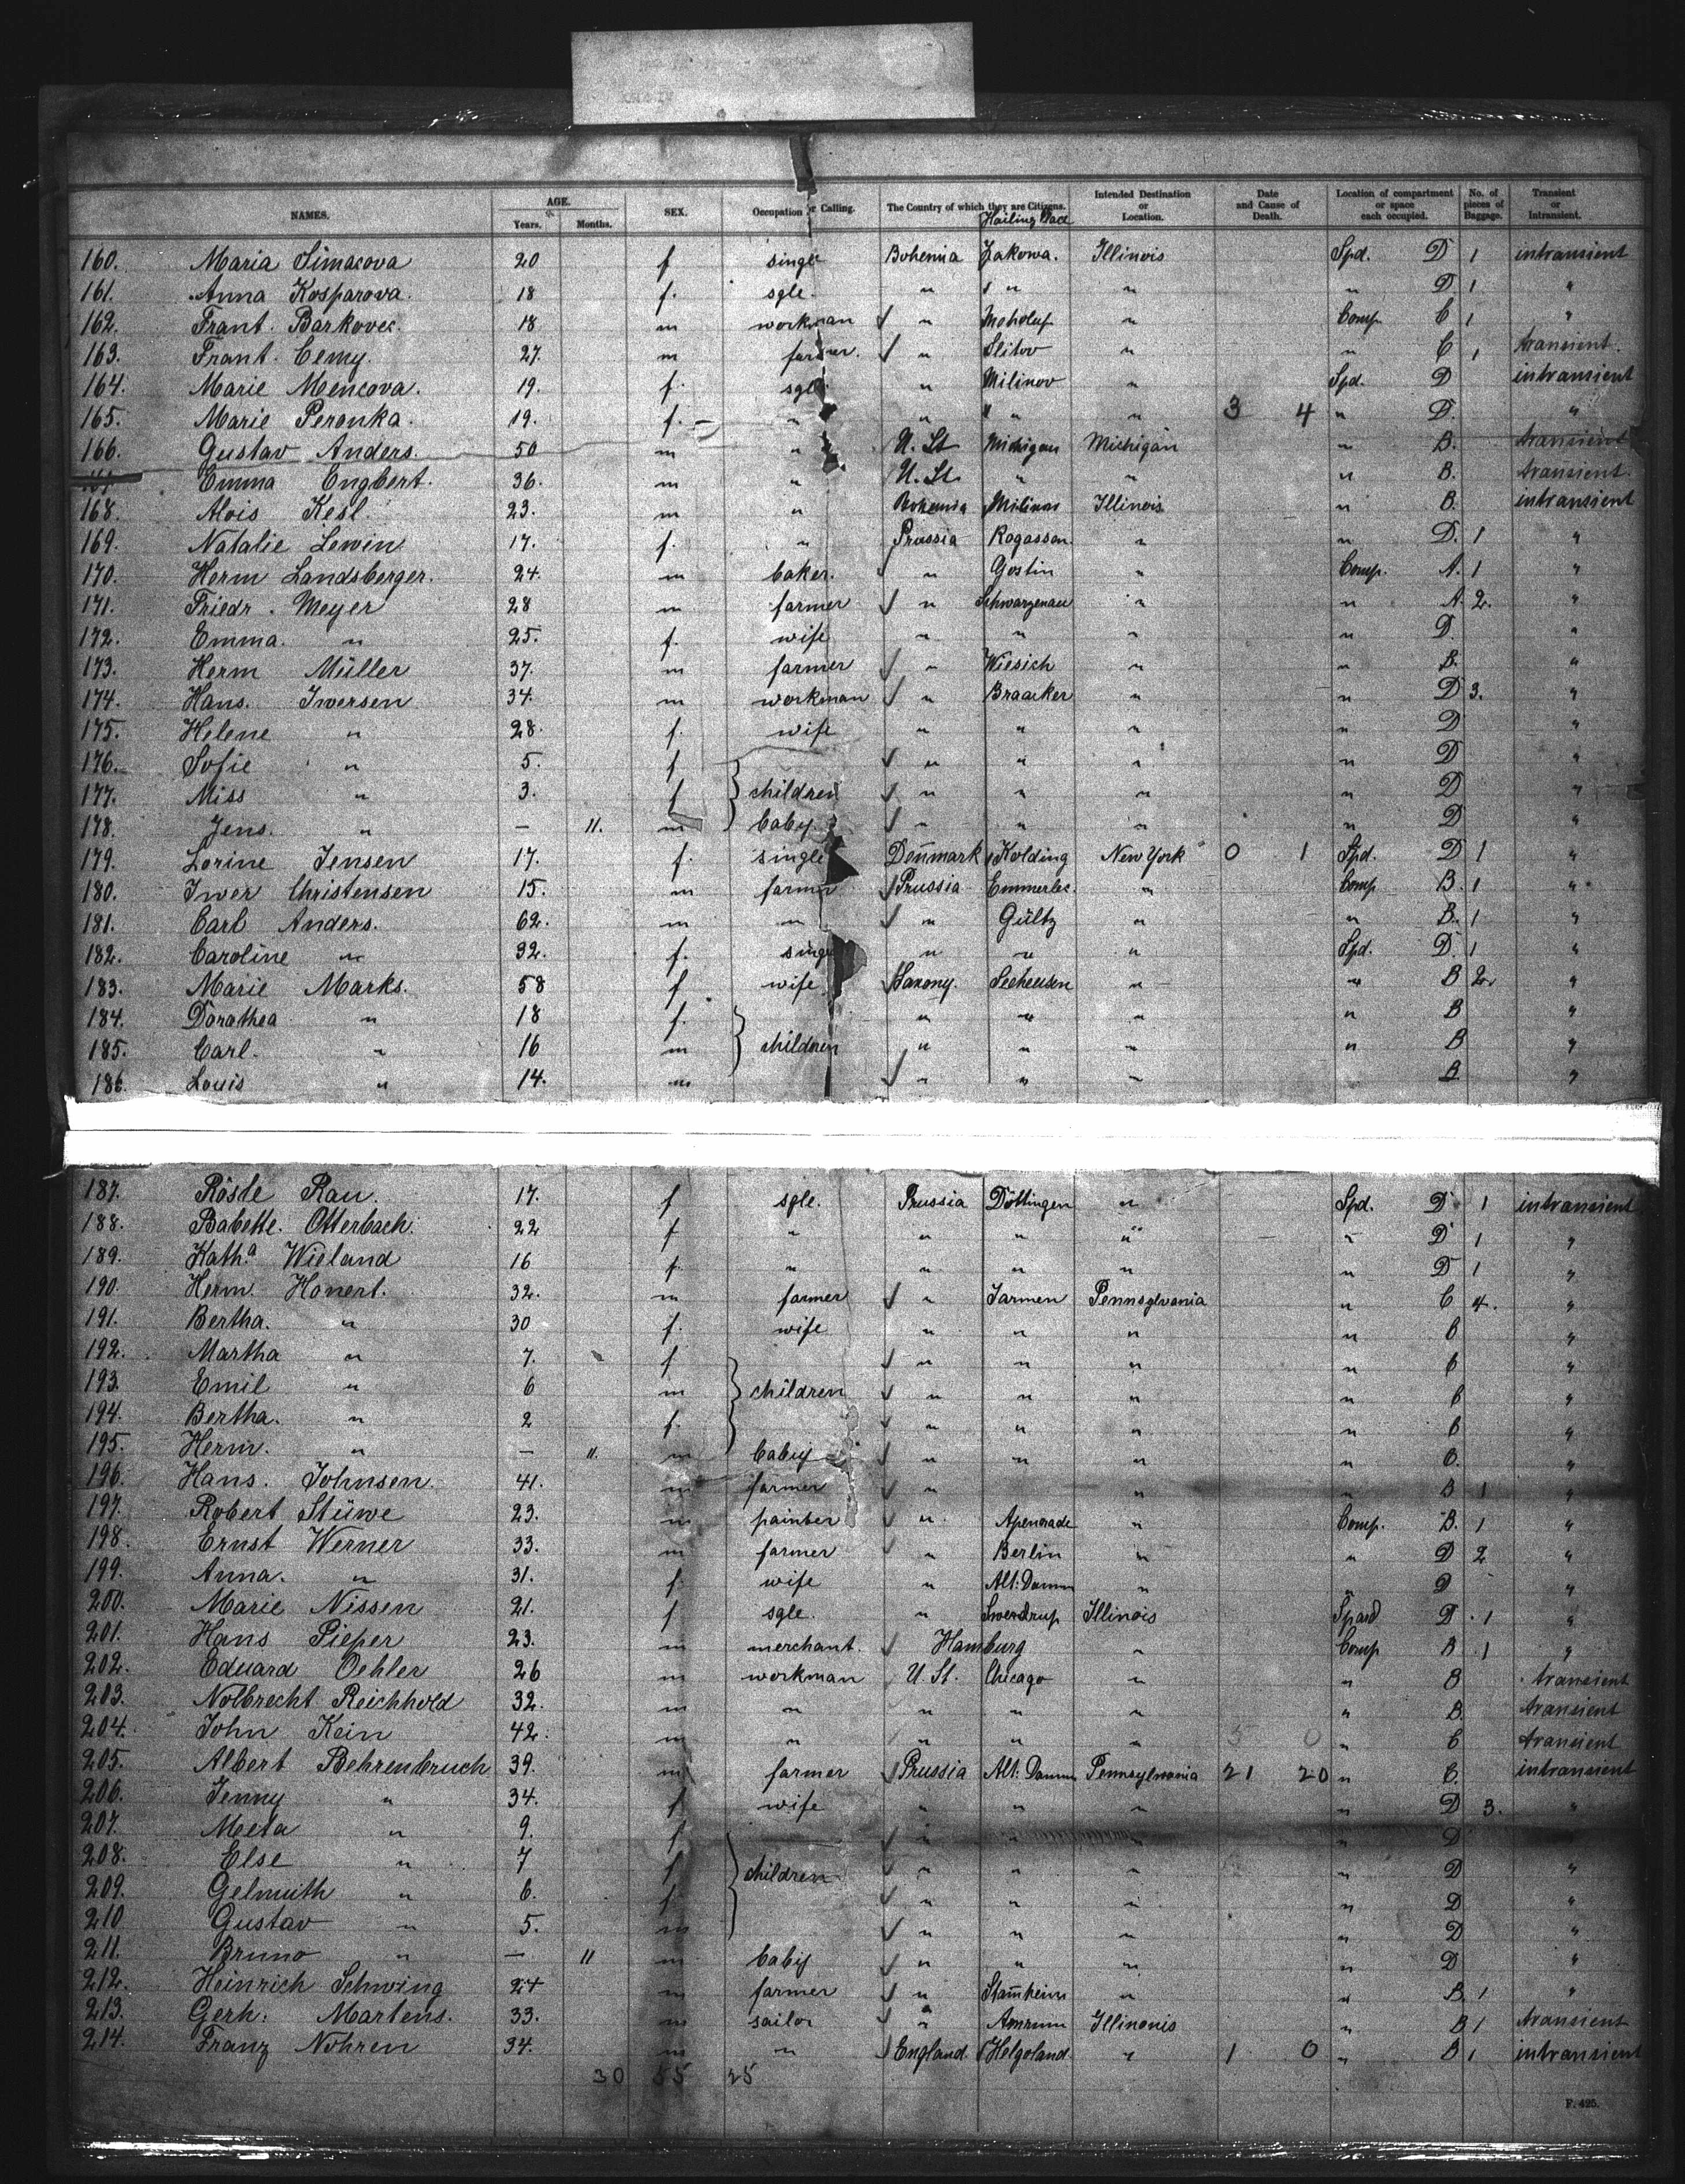 NAMES. AGE. Years. Months. SEX. Occupation or Calling. The Country of which they are Citizens. Hailing Place Intended Destination or Location. Date and Cause of Death. Location of compartment or space each occupied. No. of pieces of Baggage. Transient or Intransient.
160. Maria Simacova 20 f single Bohemia Zakowa. Illinois Spd. D 1 intransient
161. Anna Kosparova. 18 f. sgle. " " " " D 1 "
162. Frant. Barkovec. 18 m workman " Moholup " Comp C 1 "
163. Frant. Cemy. 27. m farmer. " Slitov " " C 1 transient.
164. Marie Mencova. 19. f. sgle " Milinov " Spd. D intransient
165. Marie Peronka. 19. f. " " " " 3 4 " D. "
166. Gustav Anders. 50 m " U. St Michigan Michigan " B. transient
Emma Engbert. 36. m " U. St. " " " B. transient.
168. Alois Kesl. 23. m " Bohemia Milinov Illinois " B. intransient
169. Natalie Lewin 17. f. " Prussia Rogassan " " D. 1 "
170. Herm Landsberger. 24. m baker. " Gostin " Comp. A. 1 "
171. Friedr. Meyer 28 m farmer " Schwarzenau " " A. 2. "
172. Emma. " 25. f. wife " " " " D. "
173. Herm Müller 37. m farmer " Wiesich " " B. "
174. Hans. Iwersen 34. m workman " Braacker " " D 3. "
175. Helene " 28. f. wife " " " " D "
176. Sofie " 5. f " " " " D "
177. Miss " 3. f children " " " " D "
178. Jens. " — 11. m baby " " " " D "
179. Lorine Jensen 17. f. single Denmark Kolding New York 0 1 Spd. D 1 "
180. Iwer Christensen 15. m farmer Prussia Emmerlec. " Comp B. 1 "
181. Carl Anders. 62. m " " Gültz " " B. 1 "
182. Caroline " 32. f. single " " " Spd. D. 1 "
183. Marie Marks. 58 f wife Saxony. Seeheusen " " B 2. "
184. Dorathea " 18 f. " " " " B "
185. Carl. " 16 m children " " " " B "
186. Louis " 14. m " " " B "
187. Röste Rau. 17. f sgle. Prussia Döttingen " Spd. D 1 intransient
188. Babette. Otterbach. 22 f " " " " " D 1 "
189. Kath.a Wieland 16 f. " " " " " D 1 "
190. Herm. Honert. 32. m farmer " Jarmen Pennsylvania " C 4. "
191. Bertha. " 30 f. wife " " " " C "
192. Martha " 7. f " " " " C "
193. Emil " 6 m children " " " " C "
194. Bertha. " 2 f. " " " " C "
195. Herm. " — 11. m baby " " " " C. "
196. Hans. Johnsen. 41. m farmer " " " B 1 "
197. Robert Stüwe 23. m painter " Apenrade " Comp. B. 1 "
198. Ernst Werner 33. m farmer " Berlin " " D 2 "
199. Anna. " 31. f wife " Alt: Damm " " D "
200. Marie Nissen 21. f sgle. " Swerdrup Illinois Spard D 1 "
201. Hans Pieper 23. m merchant. Hamburg " Comp B. 1 "
202. Eduard Oehler 26 m workman U. St. Chicago " " B transient
203. Nolbrecht Reichhold 32. m " " " " " B. transient
204. John Kein 42. m " " " " 5 0 " C transient
205. Albert Behrenbruch 39. m farmer Prussia Alt: Damm Pennsylvania 21 20 " C. intransient
206. Jenny " 34. f wife " " " " D 3. "
207. Meta " 9. f " " " " D
208. Else " 7 f children " " " " D "
209. Gelmuth " 6. f " " " " D "
210 Gustav " 5. m " " " " D "
211. Bruno " — 11 m baby " " " " D "
212. Heinrich Schwing 24 m farmer " Stam̄heim " " B. 1 "
213. Gerh: Martens. 33. m sailor " Amrum Illinonis " B 1 transient
214. Franz Nohren 34. m " England. Helgoland. " 1 0 " B 1 intransient
30 55 25
F. 425.